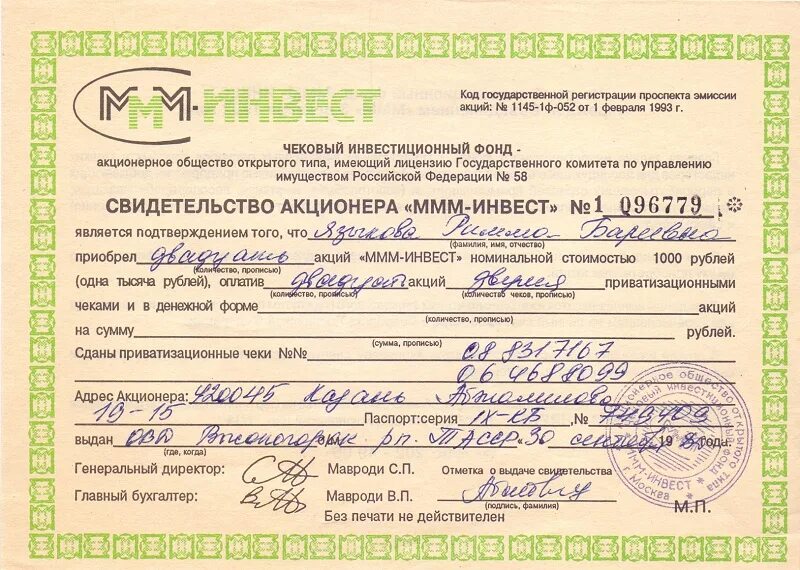 МММ-ИНВЕСТ
Код государственной регистрации проспекта эмиссии
акций: № 1145-1ф-052 от 1 февраля 1993 г.
ЧЕКОВЫЙ ИНВЕСТИЦИОННЫЙ ФОНД -
акционерное общество открытого типа, имеющий лицензию Государственного комитета по управлению
имуществом Российской Федерации № 58
СВИДЕТЕЛЬСТВО АКЦИОНЕРА «МММ-ИНВЕСТ» №1 096779
является подтверждением того, что Языкова Римма Бариевна
(фамилия, имя, отчество)
приобрел двадцать акций «МММ-ИНВЕСТ» номинальной стоимостью 1000 рублей
(количество, прописью)
(одна тысяча рублей), оплатив двадцать акций двумя приватизационными
(количество, прописью) (количество чеков, прописью)
чеками и в денежной форме акций
(количество, прописью)
на сумму рублей.
(сумма, прописью)
Сданы приватизационные чеки №№ 08 8317167
06 4688099
Адрес Акционера: 420045 Казань
19-15 Паспорт:серия IX-КБ, №
выдан ОВД р-на ТАССР 30 19 года.
(где, когда)
Генеральный директор: Мавроди С.П. Отметка о выдаче свидетельства
Главный бухгалтер: Мавроди В.П.
(подпись, фамилия)
М.П.
Без печати не действителен
МММ-ИНВЕСТ
г. Москва